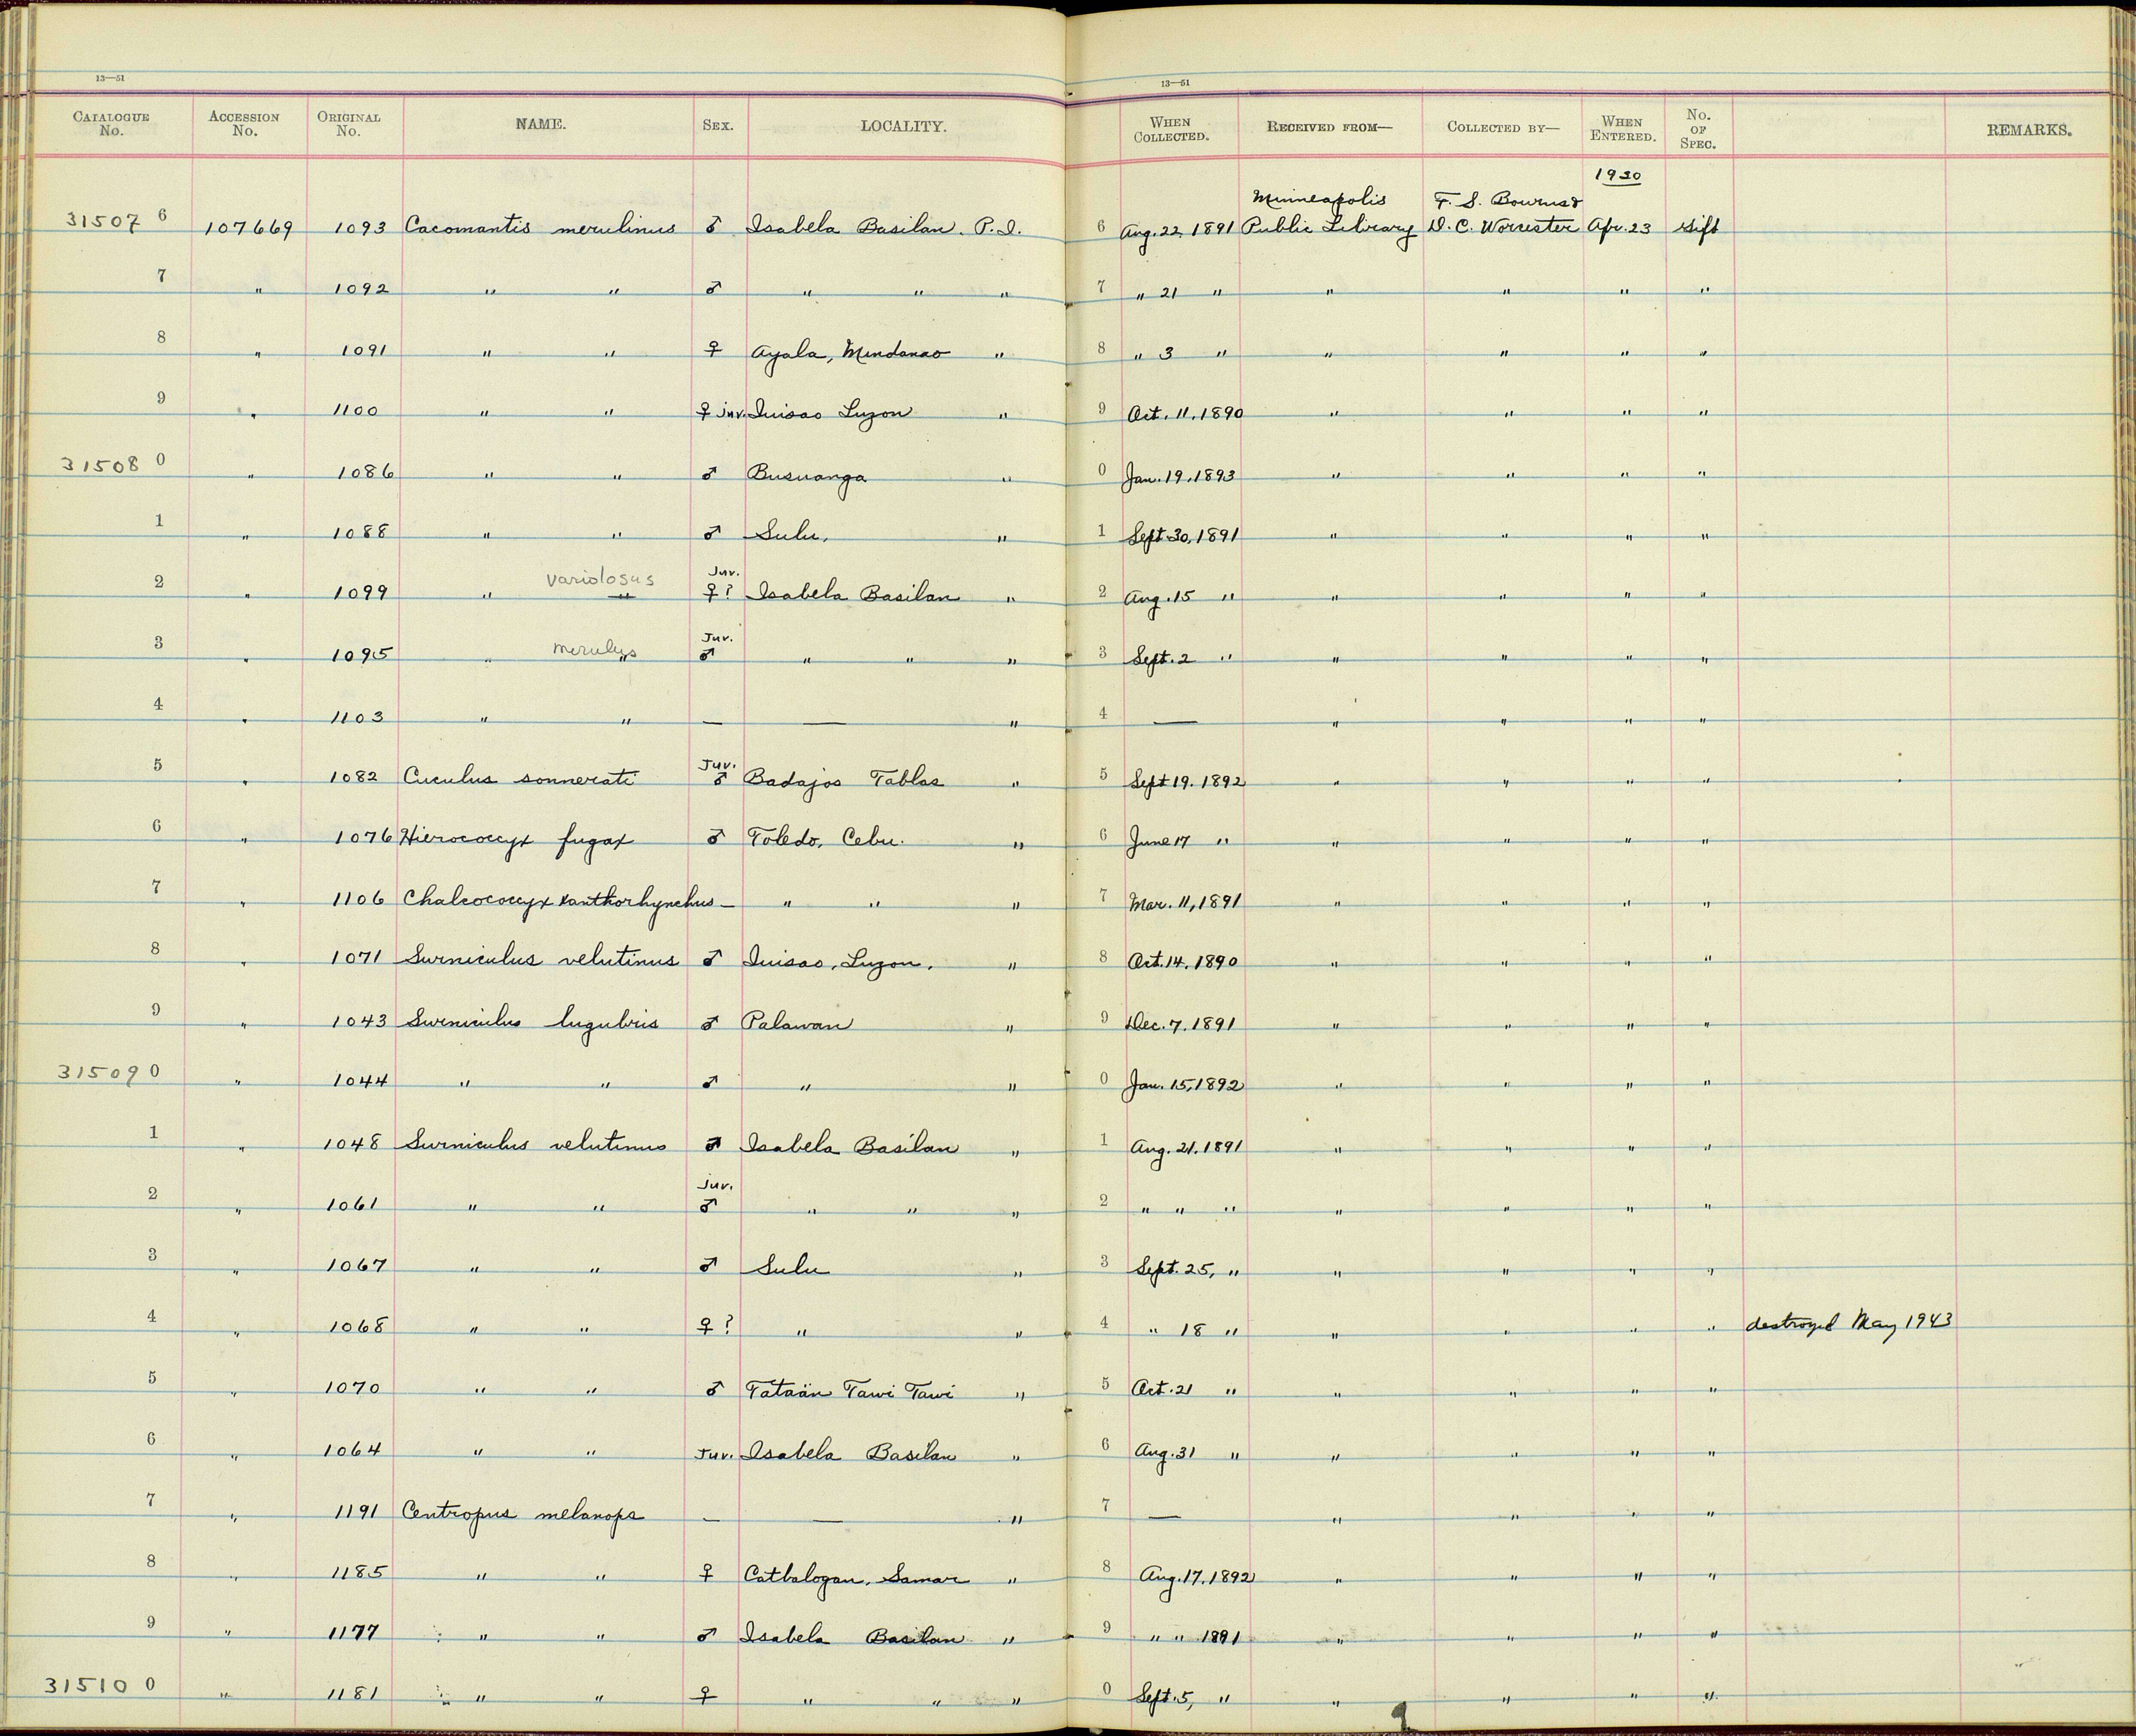 13—51 13—51
CATALOGUE No. ACCESSION No. ORIGINAL No. NAME. SEX. LOCALITY. WHEN COLLECTED. RECEIVED FROM— COLLECTED BY— WHEN ENTERED. No. OF SPEC. REMARKS.
1930
Minneapolis F. S. Bourns &
31507 6 107669 1093 Cacomantis merulinus ♂ Isabela Basilan. P.I. 6 Aug. 22, 1891 Public Library D. C. Worcester Apr. 23 Gift
7 " 1092 " " ♂ " " " 7 " 21 " " " " "
8 " 1091 " " ♀ Ayala, Mindanao " 8 " 3 " " " " "
9 " 1100 " " ♀ juv. Luisao Luzon " 9 Oct. 11, 1890 " " " "
31508 0 " 1086 " " ♂ Busuanga " 0 Jan. 19, 1893 " " " "
1 " 1088 " " ♂ Sulu, " 1 Sept. 30, 1891 " " " "
variolosus Juv.
2 " 1099 " " ♀? Isabela Basilan " 2 Aug. 15 " " " " "
merulus Juv.
3 " 1095 " " ♂ " " " 3 Sept. 2 " " " " "
4 " 1103 " " — — " 4 — " " " "
Juv.
5 " 1082 Cuculus sonnerati ♂ Badajos Tablas " 5 Sept 19. 1892 " " " "
6 " 1076 Hierococcyx fugax ♂ Toledo, Cebu. " 6 June 17 " " " " "
7 " 1106 Chalcococcyx xanthorhynchus — " " " 7 Mar. 11, 1891 " " " "
8 " 1071 Surniculus velutinus ♂ Luisao, Luzon, " 8 Oct. 14, 1890 " " " "
9 " 1043 Surniculus lugubris ♂ Palawan " 9 Dec. 7, 1891 " " " "
31509 0 " 1044 " " ♂ " " 0 Jan. 15, 1892 " " " "
1 " 1048 Surniculus velutinus ♂ Isabela Basilan " 1 Aug. 21, 1891 " " " "
Juv.
2 " 1061 " " ♂ " " " 2 " " " " " " "
3 " 1067 " " ♂ Sulu " 3 Sept. 25, " " " " "
4 " 1068 " " ♀? " " 4 " 18 " " " " " destroyed May 1943
5 " 1070 " " ♂ Tataän Tawi Tawi " 5 Oct. 21 " " " " "
6 " 1064 " " Juv. Isabela Basilan " 6 Aug. 31 " " " " "
7 " 1191 Centropus melanops — — " 7 — " " " "
8 " 1185 " " ♀ Catbalogan, Samar " 8 Aug. 17, 1892 " " " "
9 " 1177 " " ♂ Isabela Basilan " 9 " " 1891 " " " "
31510 0 " 1181 " " ♀ " " " 0 Sept. 5, " " " " "